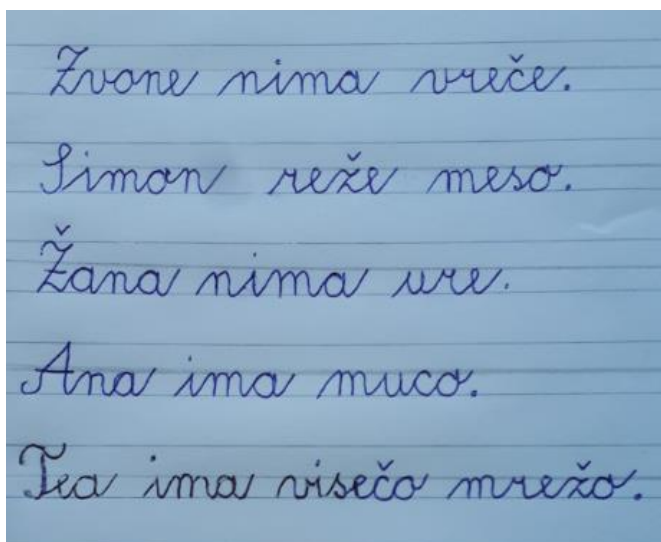 Zvone nima vreče.
Simon reže meso.
Žana nima ure.
Ana ima muco.
Tea ima visečo mrežo.